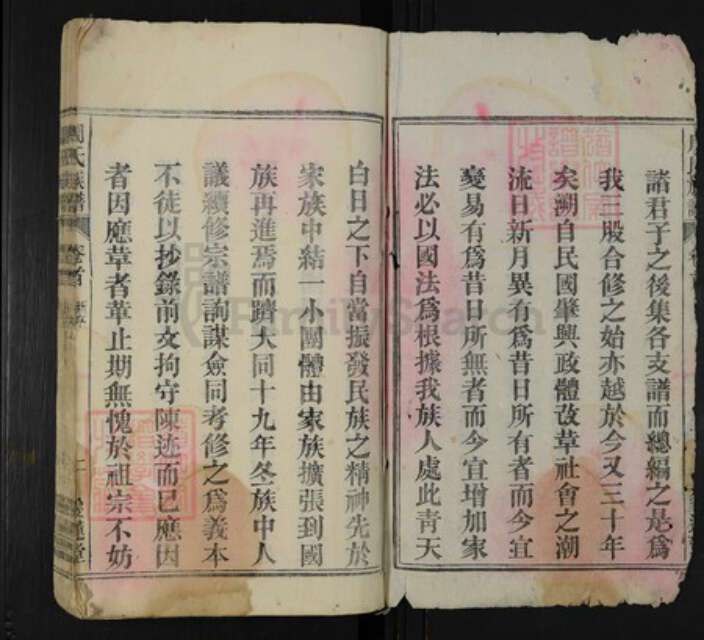 諸君子之後集各支譜而總編之是爲
我三股合修之始亦越於今又三十年
矣溯自民國肇興政體改革社會之潮
流日新月異有爲昔日所有者而今宜
變易有爲昔日所無者而今宜增加家
法必以國法爲根據我族人處此青天
白日之下自當振發民族之精神先於
家族中結一小團體由家族擴張到國
族再進焉而躋大同十九年冬族中人
議續修宗譜詢謀僉同考修之爲義本
不徒以抄錄前文拘守陳迹而已應因
者因應革者革止期無愧於祖宗不妨
周氏族譜
卷首
FamilySearch